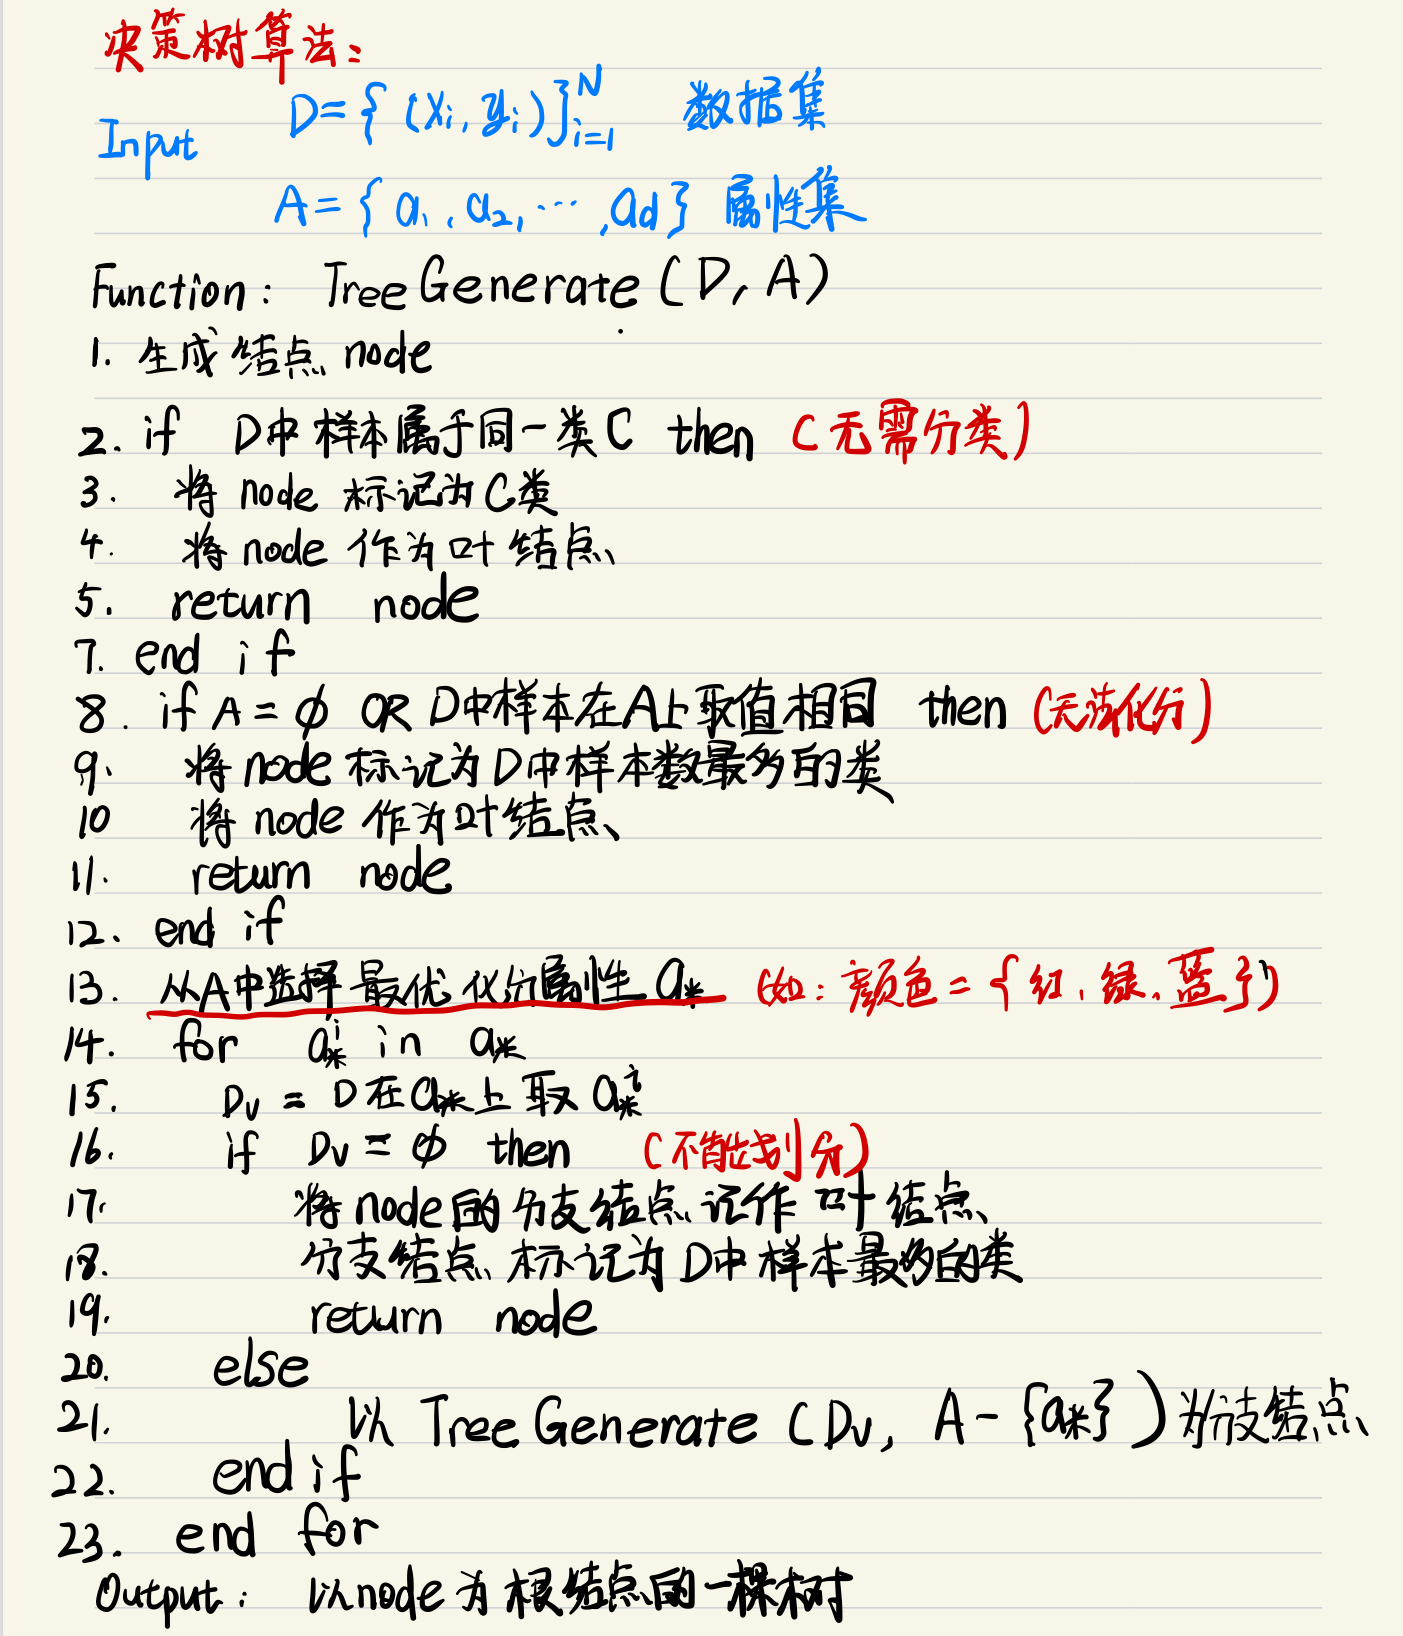 决策树算法:
D={(xi,yi)}_{i=1}^{N} 数据集
Input
A={a1,a2,…,ad} 属性集
Function: TreeGenerate(D,A)
1. 生成结点 node
2. if D中样本属于同一类C then (无需分类)
3. 将 node 标记为C类
4. 将 node 作为叶结点
5. return node
7. end if
8. if A=ϕ OR D中样本在A上取值相同 then (无法化分)
9. 将node标记为D中样本数最多的类
10 将 node 作为叶结点
11. return node
12. end if
13. 从A中选择最优化分属性 a* (如:颜色={红,绿,蓝})
14. for a*^i in a*
15. Dv = D在a*上取 a*^i
16. if Dv=ϕ then (不能划分)
17. 将node的分支结点记作叶结点
18. 分支结点标记为D中样本最多的类
19. return node
20. else
21. 以 TreeGenerate(Dv, A-{a*})为分支结点
22. end if
23. end for
Output: 以node为根结点的一棵树